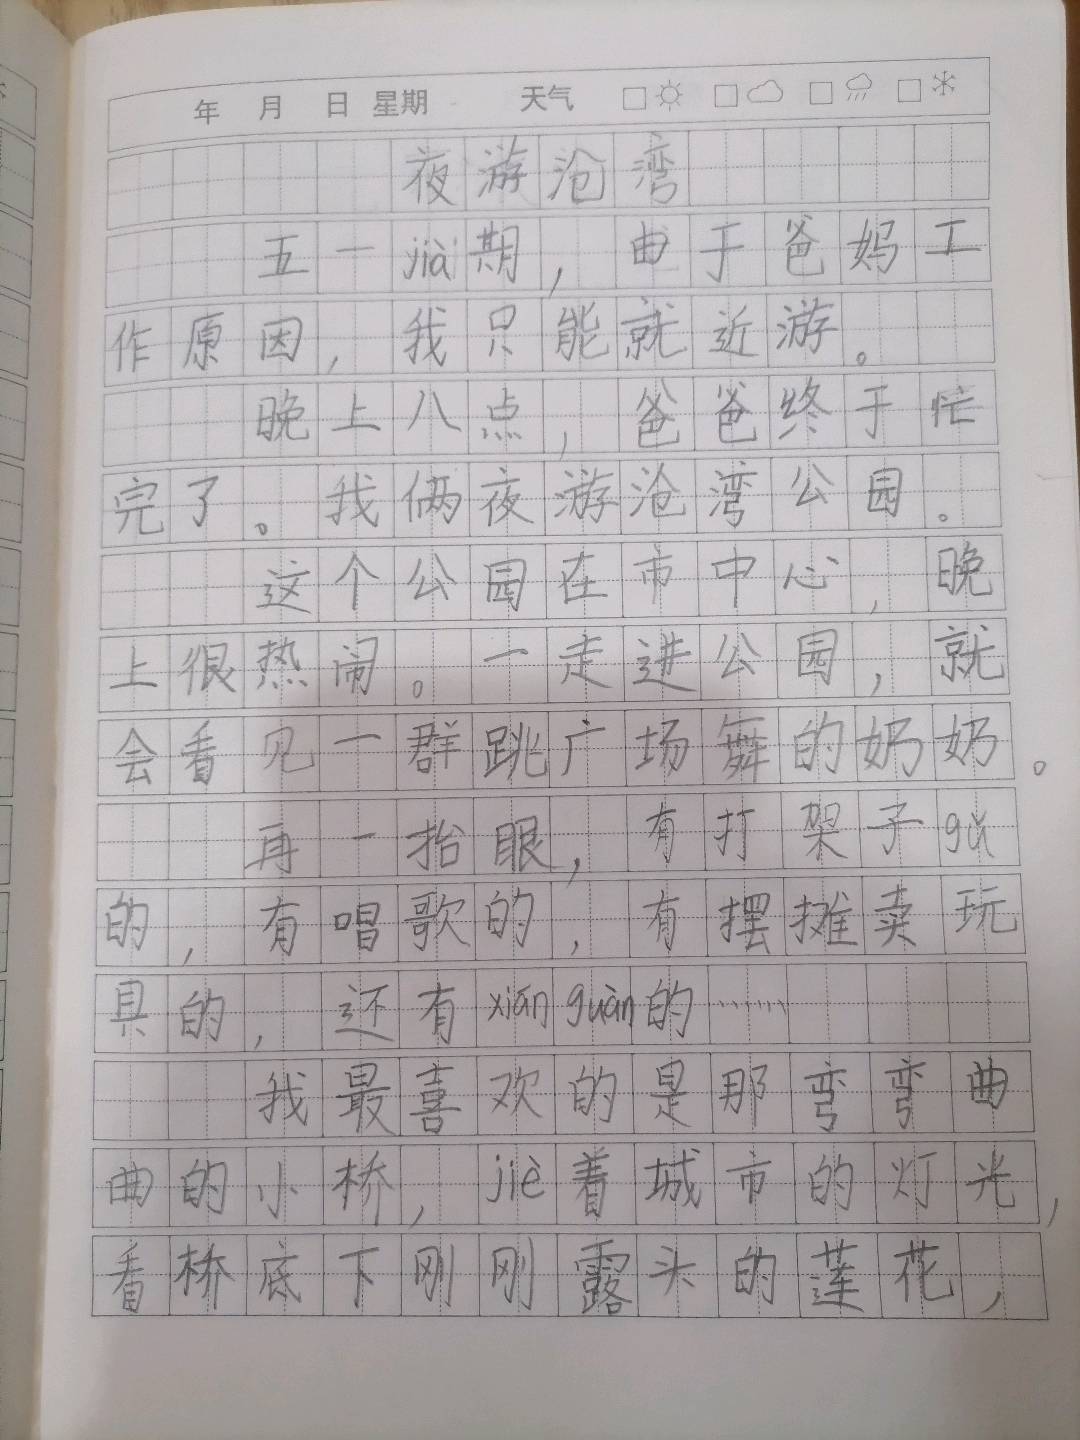 年 月 日 星期 天气
夜游沧湾
五一jià期，由于爸妈工
作原因，我只能就近游。
晚上八点，爸爸终于忙
完了。我俩夜游沧湾公园。
这个公园在市中心，晚
上很热闹。一走进公园，就
会看见一群跳广场舞的奶奶。
再一抬眼，有打架子gǔ
的，有唱歌的，有摆摊卖玩
具的，还有xiánguàn的……
我最喜欢的是那弯弯曲
曲的小桥，jiè着城市的灯光，
看桥底下刚刚露头的莲花，